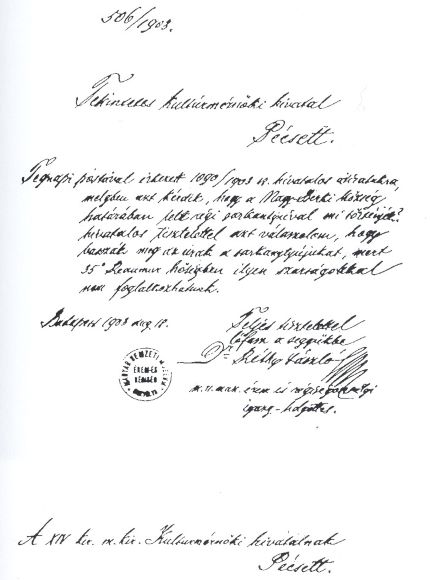 506/1903.
Tekintetes Kultúrmérnöki hivatal
Pécsett.
Tegnapi postával érkezett 1090/1903 sz. hivatalos átiratukra,
melyben azt kérdik, hogy a Nagy-Berki község
határában lelt régi sarkantyúval mi történjék?
hivatalos tisztelettel azt válaszolom, hogy
basszák meg az urak a sarkantyújukat, mert
35° Reaumur hőségben ilyen szarságokkal
nem foglalkozhatunk.
Budapest 1903 aug. 18.
Teljes tisztelettel
lófasz a seggükbe
Dr Réthy László
m. n. muz. érem és régiségosztályi
igazg-helyettes.
MAGYAR NEMZETI
ÉREM ÉS
RÉGISÉG
A XIV ker. m. kir. Kultúrmérnöki hivatalnak
Pécsett.